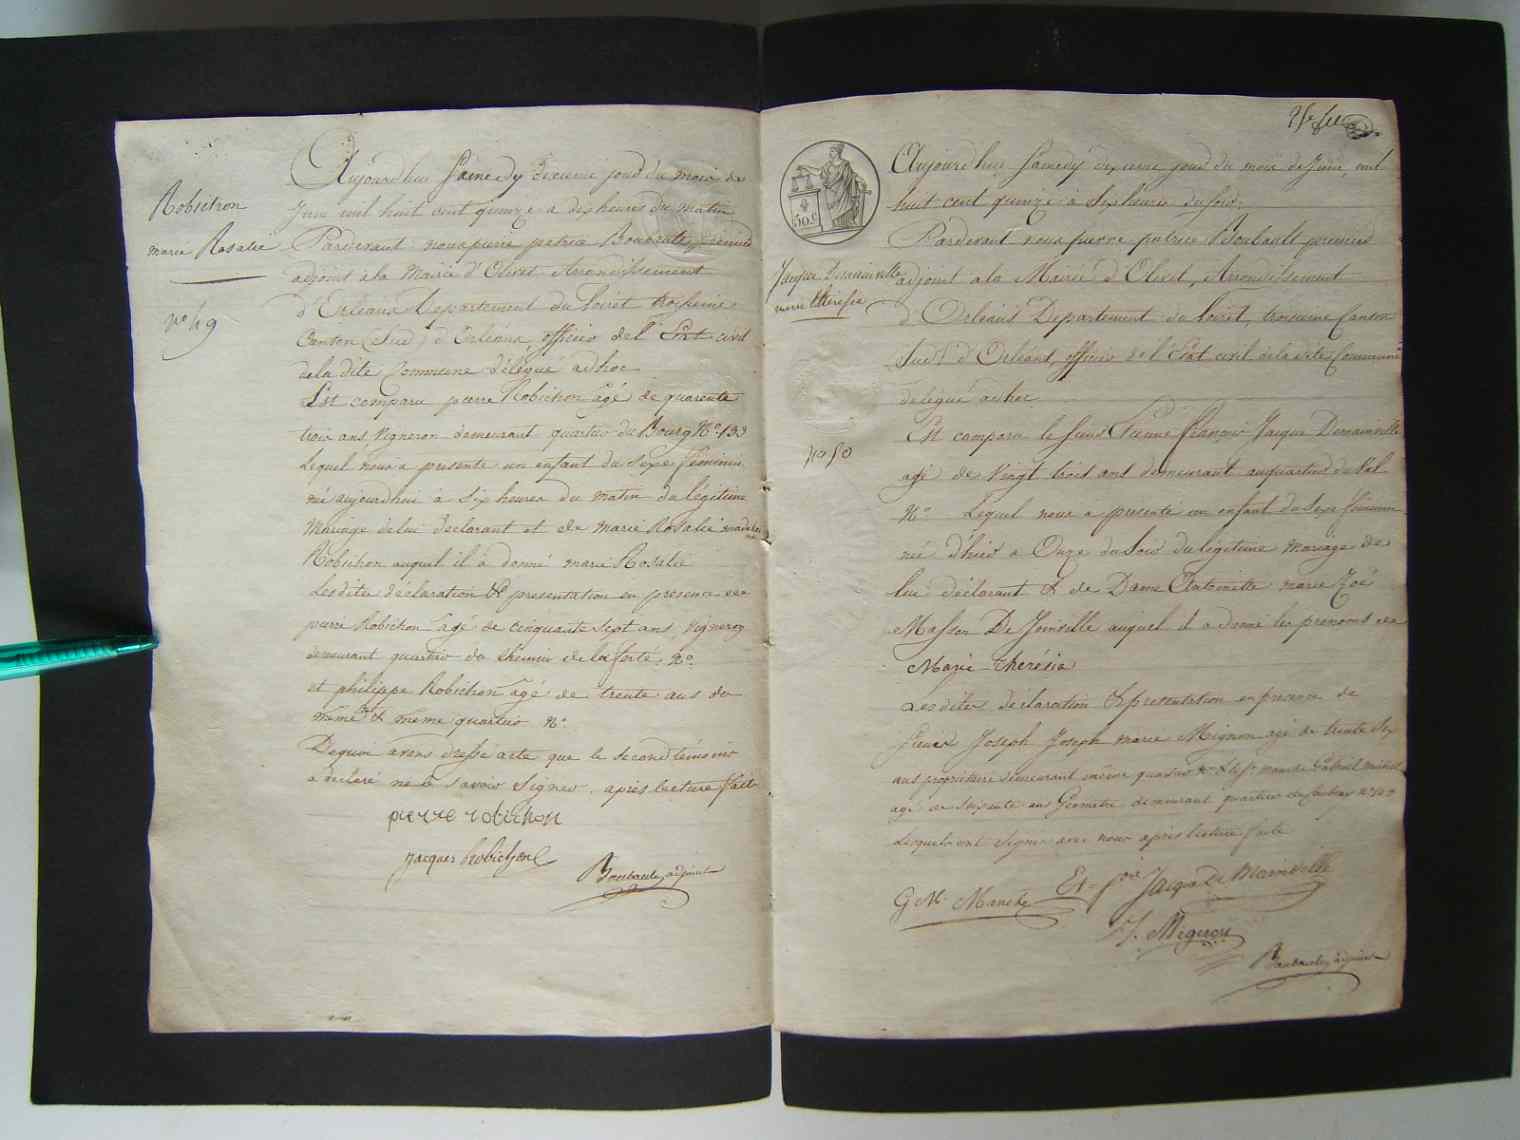 Robichon
marie Rosalie
No 49
Aujourd'hui Samedy dixieme jour du mois de
Juin mil huit cent quinze a dix heures du matin
Pardevant nous pierre patrice Boubault, premier
adjoint a la Mairie d'Olivet Arrondissement
d'Orléans Departement du Loiret troisieme
Canton (Sud) d'Orléans, officier de l'Etat civil
de la dite Commune délégué ad hoc
Est comparu pierre Robichon agé de quarente
trois ans Vigneron demeurant quartier du Bourg No. 133
Lequel nous a presenté un enfant du Sexe féminin
né aujourdhui à Six heures du matin du légitime
Mariage de lui declarant et de Marie Rosalie
Robichon auquel il a donné marie Rosalie
Lesdites déclaration & presentation en presence de
pierre Robichon agé de cinquante Sept ans, Vigneron
demeurant quartier du Chemin de la ferté, No.
et philippe Robichon agé de trente ans du
meme & meme quartier No.
De quoi avons dressé acte que le second témoin
a déclaré ne le savoir Signer, après lecture faite
pierre robichon
jacques Robichon
Boubault adjoint
Aujourd'hui Samedy dixieme jour du mois de Juin, mil
huit cent quinze à Six heures du Soir.
Pardevant nous pierre patrice Boubault premier
adjoint a la Mairie d'Olivet, Arrondissement
d'Orléans Departement du Loiret, troisieme Canton
Sud) d'Orléans, officier de l'Etat civil de la dite Commune
délégué ad hoc
Jacque Demainville
marie thérésia
50.C
No 50
Est comparu le Sieur Etienne françois Jacque Demainville
agé de Vingt trois ans demeurant au quartier du Val
No. Lequel nous a presenté un enfant du Sexe féminin
né d'hier a Onze du Soir du légitime mariage de
lui déclarant & de Dame Antoinette marie Zoé
Masson De Joinville auquel il a donné les prénoms de
Marie thérésia
Lesdites déclaration & presentation en présence de
Sieur Joseph Joseph marie Mignon agé de trente Six
ans propriétaire demeurant même quartier
agé de Soixante ans Géometre, demeurant quartier du
Lesquels ont Signé avec nous après lecture faite
Et. foix Jacque De Mainville
J. Mignon
Boubault adjoint